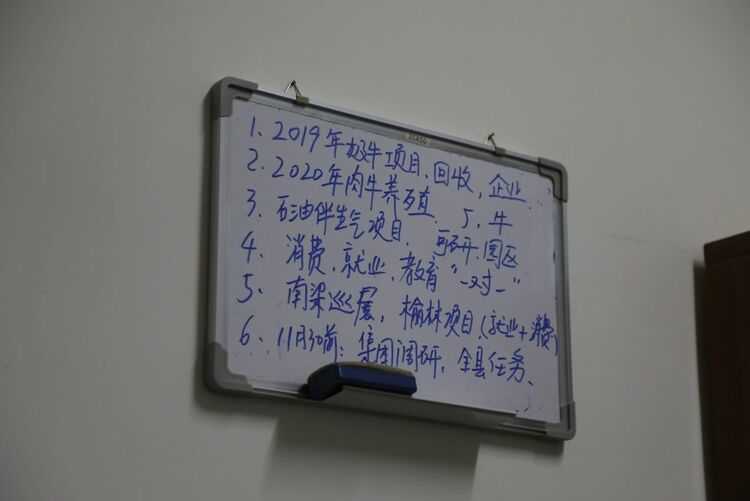 1、2019年奶牛项目、回收，企业
2、2020年肉牛养殖 5、牛
3、石油伴生气项目、可研、园区
4、消费、就业、教育“一对一”
5、南梁巡展，榆林项目(就业+消费)
6、11月30前：集团调研，全县任务、